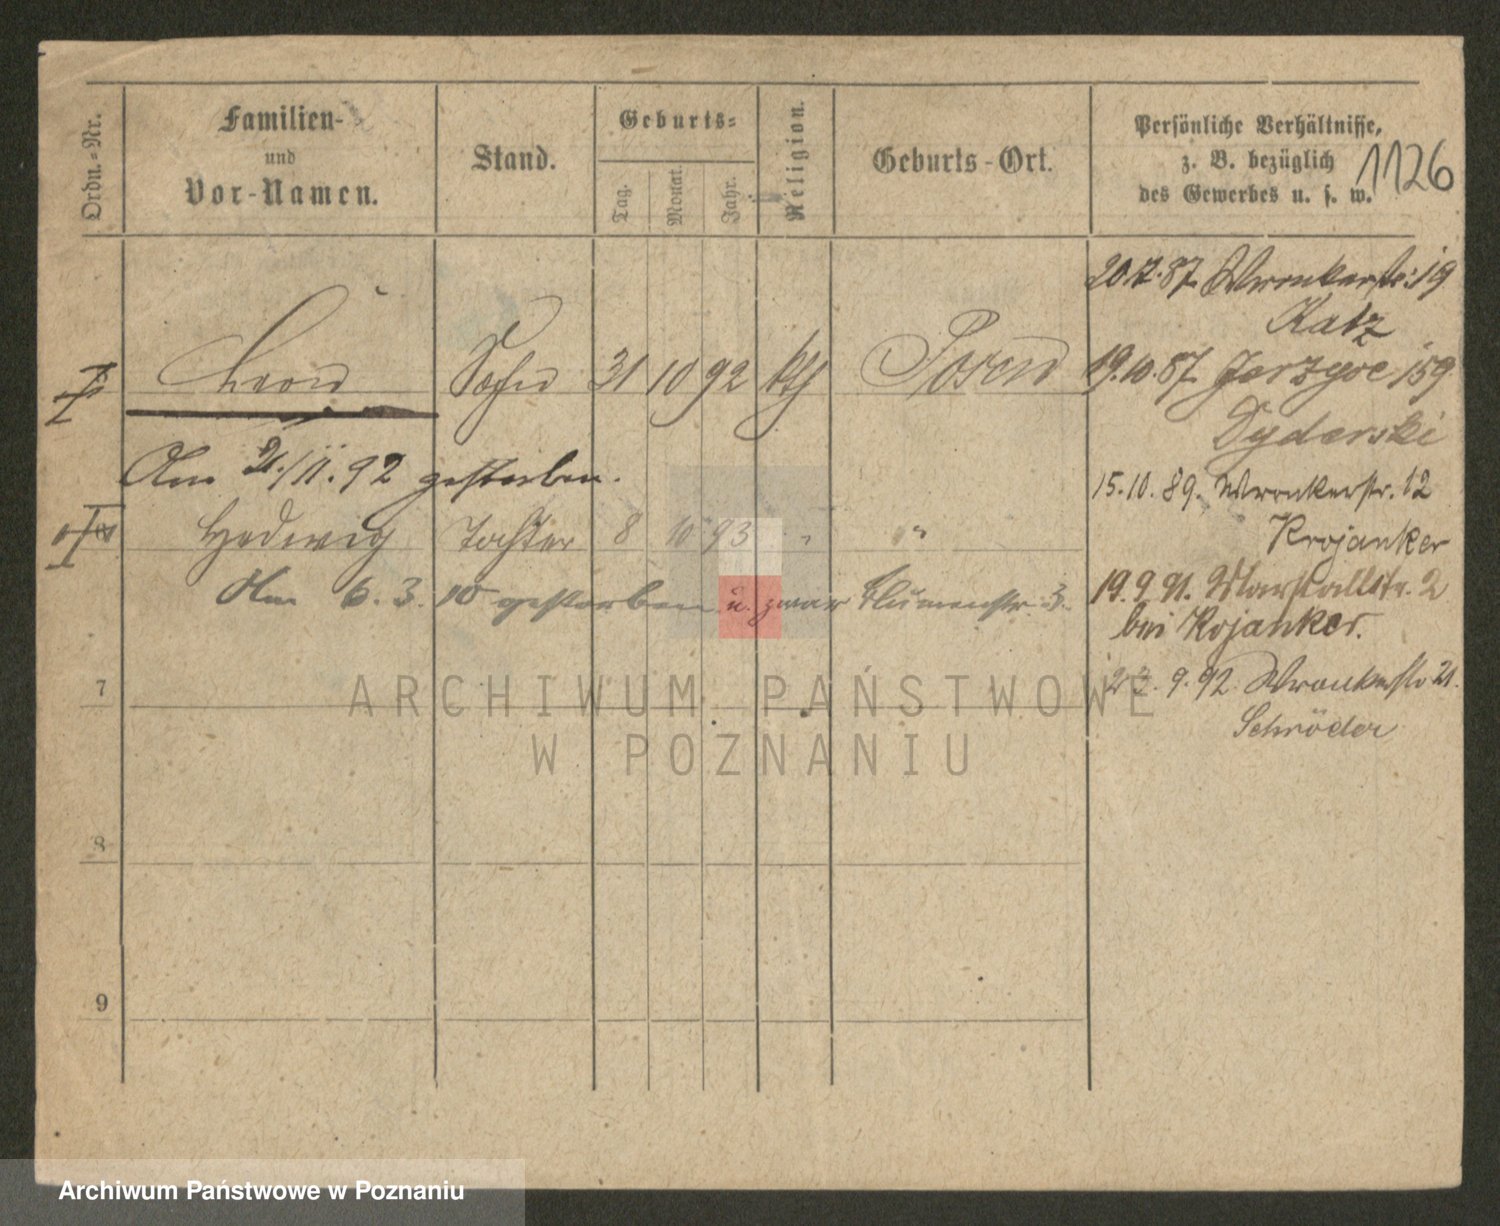 Ordn.-Nr.
Familien-
und
Vor-Namen.
Stand.
Geburts-
Tag.
Monat.
Jahr.
Religion.
Geburts-Ort.
Persönliche Verhältnisse,
z. B. bezüglich
des Gewerbes u. s. w.
1126
Leon Sohn 31 10 92 kth Posen
Am 21./11.92 gestorben.
Hedwig Tochter 8 10 93 " "
Am 6.3.10 gestorben u. zwar Blumenstr. 3.
7
8
9
20.7.87. Wronkerstr. 19
Katz
19.10.87. Jerzyce 159
Dyderski
15.10.89. Wronkerstr. 12
Krojanker
19.9.91. Marstallstr. 2
bei Kojanker.
9.92. Wronkerstr 21.
Schröder
ARCHIWUM PAŃSTWOWE
W POZNANIU
Archiwum Państwowe w Poznaniu